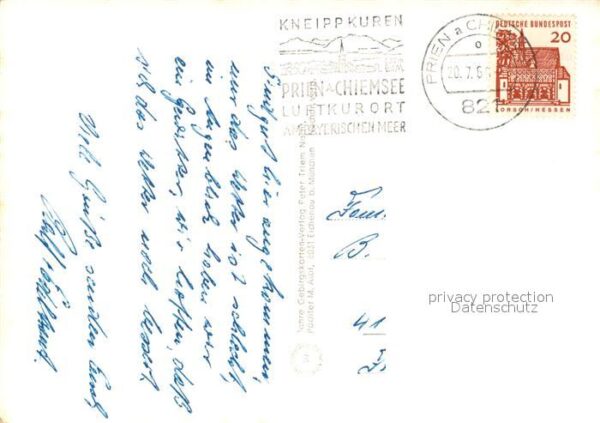 KNEIPPKUREN
PRIEN a CHIEMSEE
LUFTKURORT
AM BAYERISCHEN MEER
PRIEN a CHI
20.7.6
821
DEUTSCHE BUNDESPOST
20
LORSCH/HESSEN
Sind gut hier angekommen,
nur das Wetter ist schlecht,
im Augenblick haben wir
ein Gewitter, wir hoffen, daß
sich das Wetter noch bessert.
Viele Grüße senden Euch
Gebirgskarten-Verlag Peter
8031 Eichenau b. München
Fam.
B.
41
privacy protection
Datenschutz